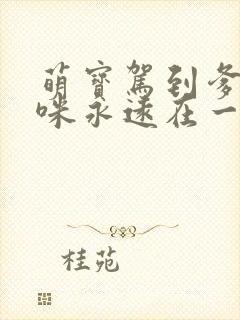 萌寶駕到爹
咪永遠在一
桂苑